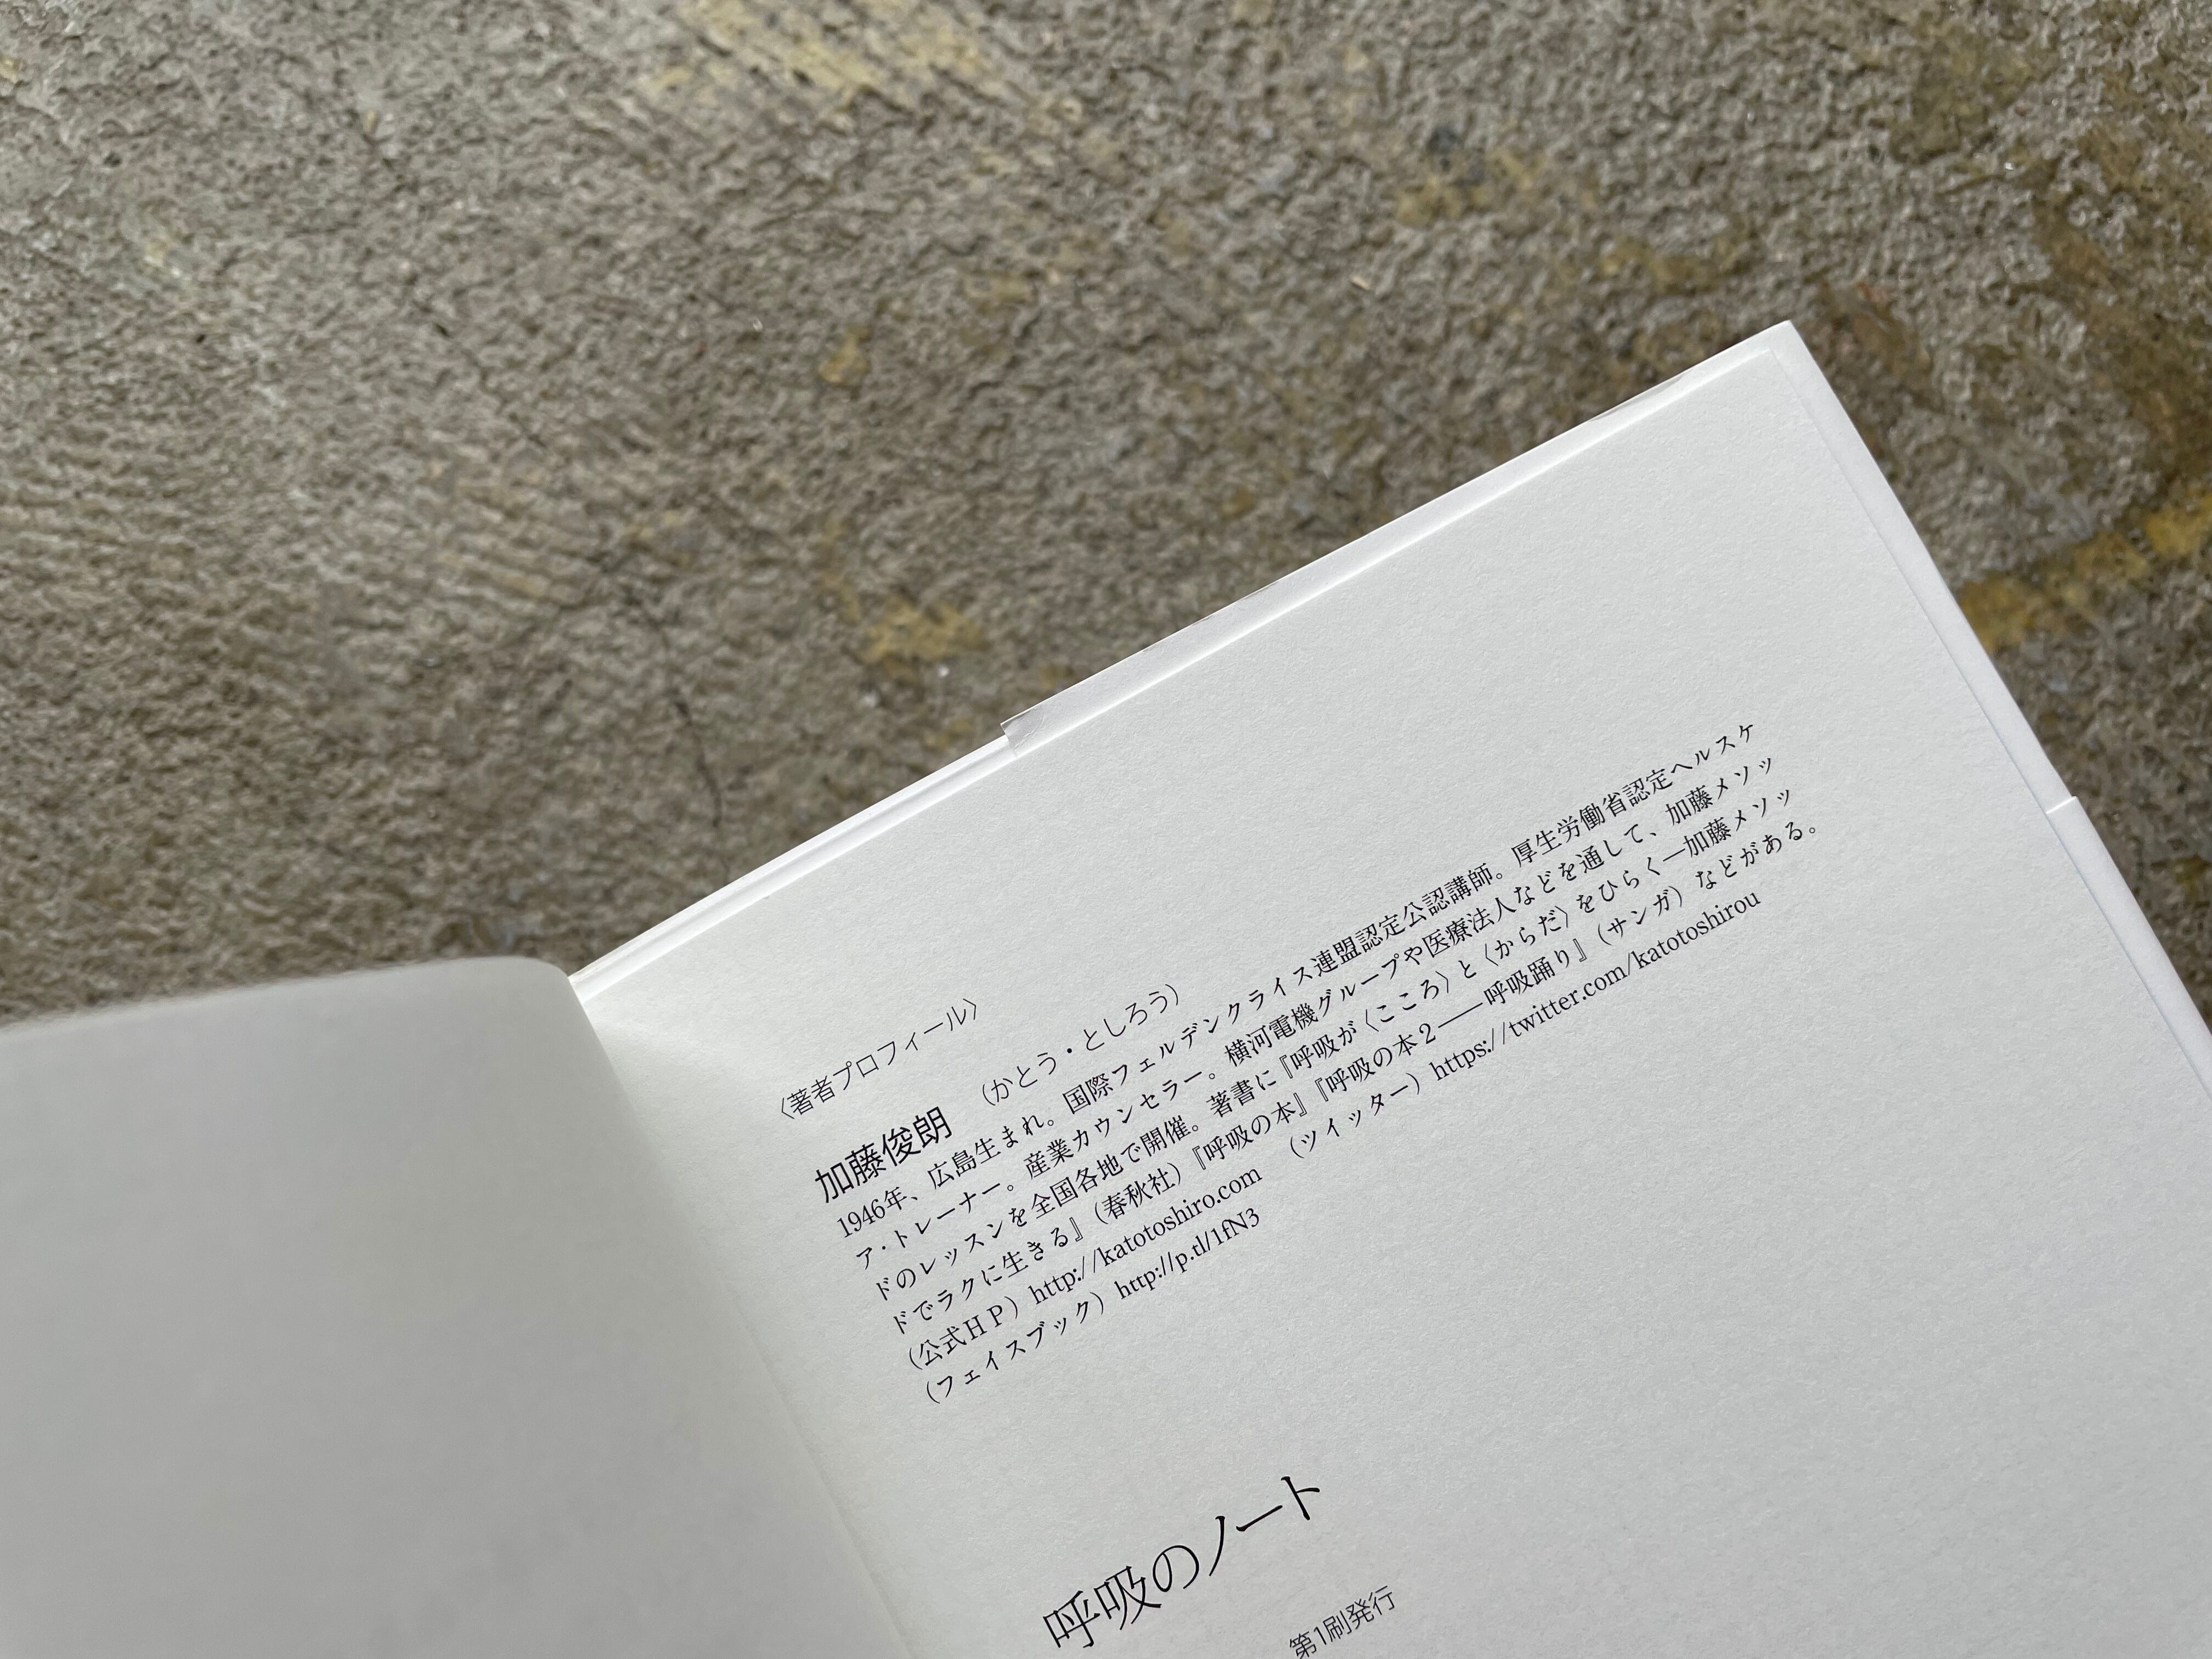 〈著者プロフィール〉
加藤俊朗　（かとう・としろう）
1946年、広島生まれ。国際フェルデンクライス連盟認定公認講師。厚生労働省認定ヘルスケ
ア・トレーナー。産業カウンセラー。横河電機グループや医療法人などを通して、加藤メソッ
ドのレッスンを全国各地で開催。著書に『呼吸が〈こころ〉と〈からだ〉をひらく―加藤メソッ
ドでラクに生きる』（春秋社）『呼吸の本』『呼吸の本２――呼吸踊り』（サンガ）などがある。
（公式ＨＰ）http://katotoshiro.com　（ツイッター）https://twitter.com/katotoshirou
（フェイスブック）http://p.tl/1fN3
呼吸のノート
第1刷発行